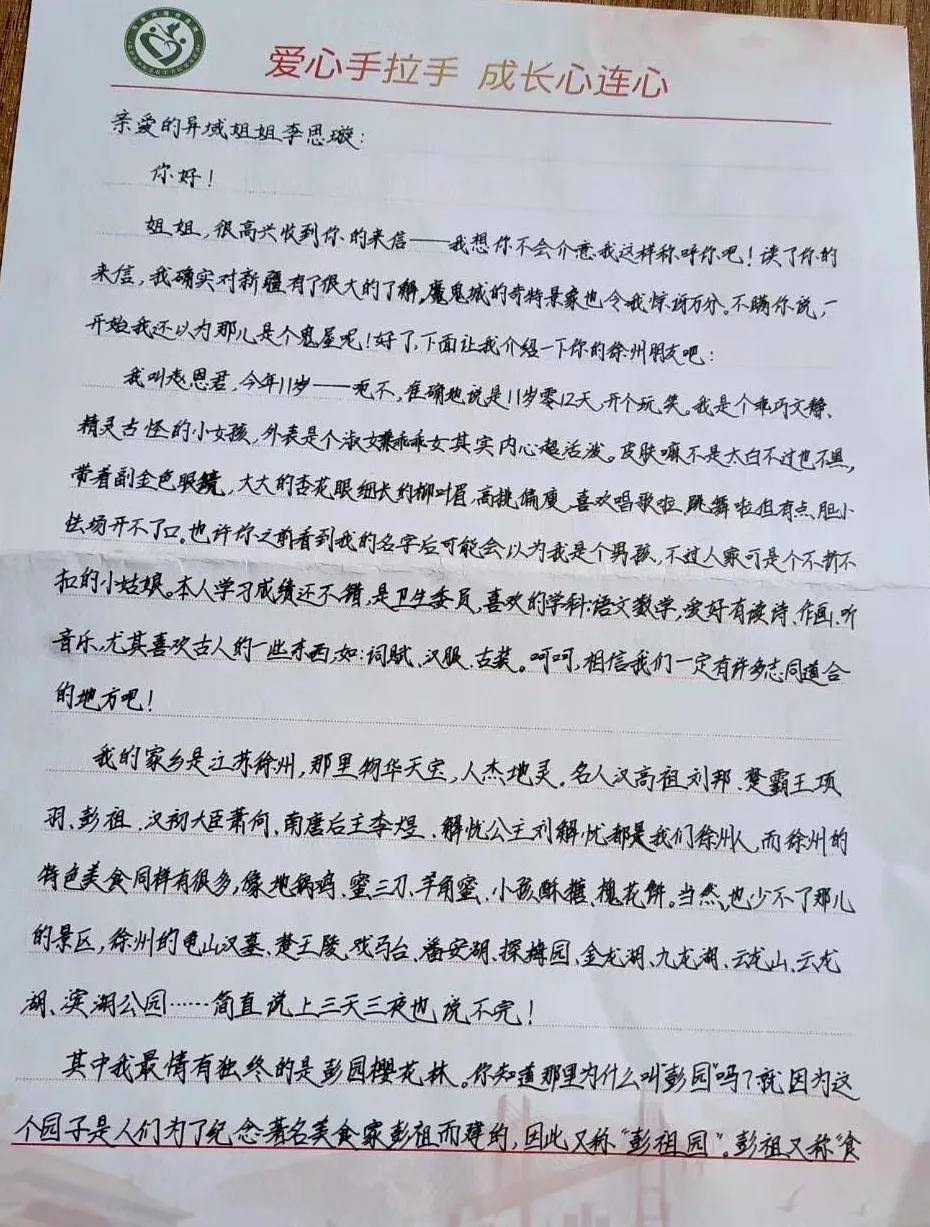 爱心手拉手 成长心连心
亲爱的异域姐姐李思璇：
你好！
姐姐，很高兴收到你的来信——我想你不会介意我这样称呼你吧！读了你的
来信，我确实对新疆有了很大的了解。魔鬼城的奇特景象也令我惊讶万分。不瞒你说，一
开始我还以为那儿是个鬼屋呢！好了，下面让我介绍一下你的徐州朋友吧：
我叫赵恩君，今年11岁——呃不，准确地说是11岁零12天，开个玩笑。我是个乖巧文静、
精灵古怪的小女孩，外表是个淑女乖乖女其实内心超活泼。皮肤嘛不是太白不过也不黑，
带着副金色眼镜，大大的杏花眼细长的柳叶眉，高挑偏瘦，喜欢唱歌啦、跳舞啦但有点胆小
怯场开不了口。也许你之前看到我的名字后可能会以为我是个男孩，不过人家可是个不折不
扣的小姑娘。本人学习成绩还不错，是卫生委员，喜欢的学科：语文数学，爱好有读诗、作画、听
音乐，尤其喜欢古人的一些东西，如：词赋、汉服、古装。呵呵，相信我们一定有许多志同道合
的地方吧！
我的家乡是江苏徐州，那里物华天宝，人杰地灵。名人汉高祖刘邦、楚霸王项
羽、彭祖、汉初大臣萧何、南唐后主李煜、解忧公主刘解忧都是我们徐州人，而徐州的
特色美食同样有很多，像地锅鸡、蜜三刀、羊角蜜、小孩酥糖、槐花饼。当然，也少不了那儿
的景区，徐州的龟山汉墓、楚王陵、戏马台、潘安湖、探梅园、金龙湖、九龙湖、云龙山、云龙
湖、滨湖公园……简直说上三天三夜也说不完！
其中我最情有独终的是彭园樱花林。你知道那里为什么叫“彭园”吗？就因为这
个园子是人们为了纪念著名美食家彭祖而建的，因此又称“彭祖园”。彭祖又称“食